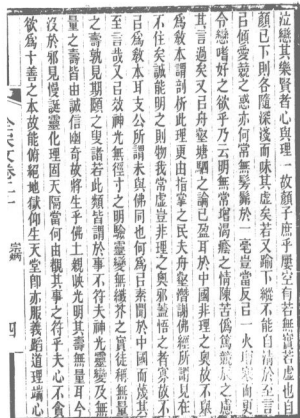 泣戀其樂賢者心與理一故顏子庶乎屢空有若無實若虛也由
顏已下則各隨深淺而味其虛矣若又踰下縱不能自清於至言
以傾愛競之惑亦何常無髣髴於一毫豈當反以一火增寒而更
令戀嗜好之欲乎乃云明無常增渴癊之情陳苦偽篤競辰之慮
其言過矣又以舟壑塘駟之論已盈耳於中國非理之奧故不舉
為教本謂剖析此理更由指掌之民夫舟壑潛謝佛經所謂見在
不住矣誠能明之則物我常虛豈非理之奧邪蓋悟之者寡故不
以為教本耳支公所謂未與佛同也何為以素聞於中國而蔑其
至言哉又以效神光無徑寸之明驗靈變無纖芥之實徒稱無量
之壽孰見期頤之叟諸若此類皆謂於事不符夫神光靈變及無
量之壽皆由誠信幽奇故將生乎佛土親映光明其壽無量耳今
沒於邪見慢誕靈化理固天隔當何由覩其事之符乎夫心不貪
欲為十善之本故能俯絕地獄仰生天堂即亦服義蹈道理端心
全宋文卷二十
宗炳
四